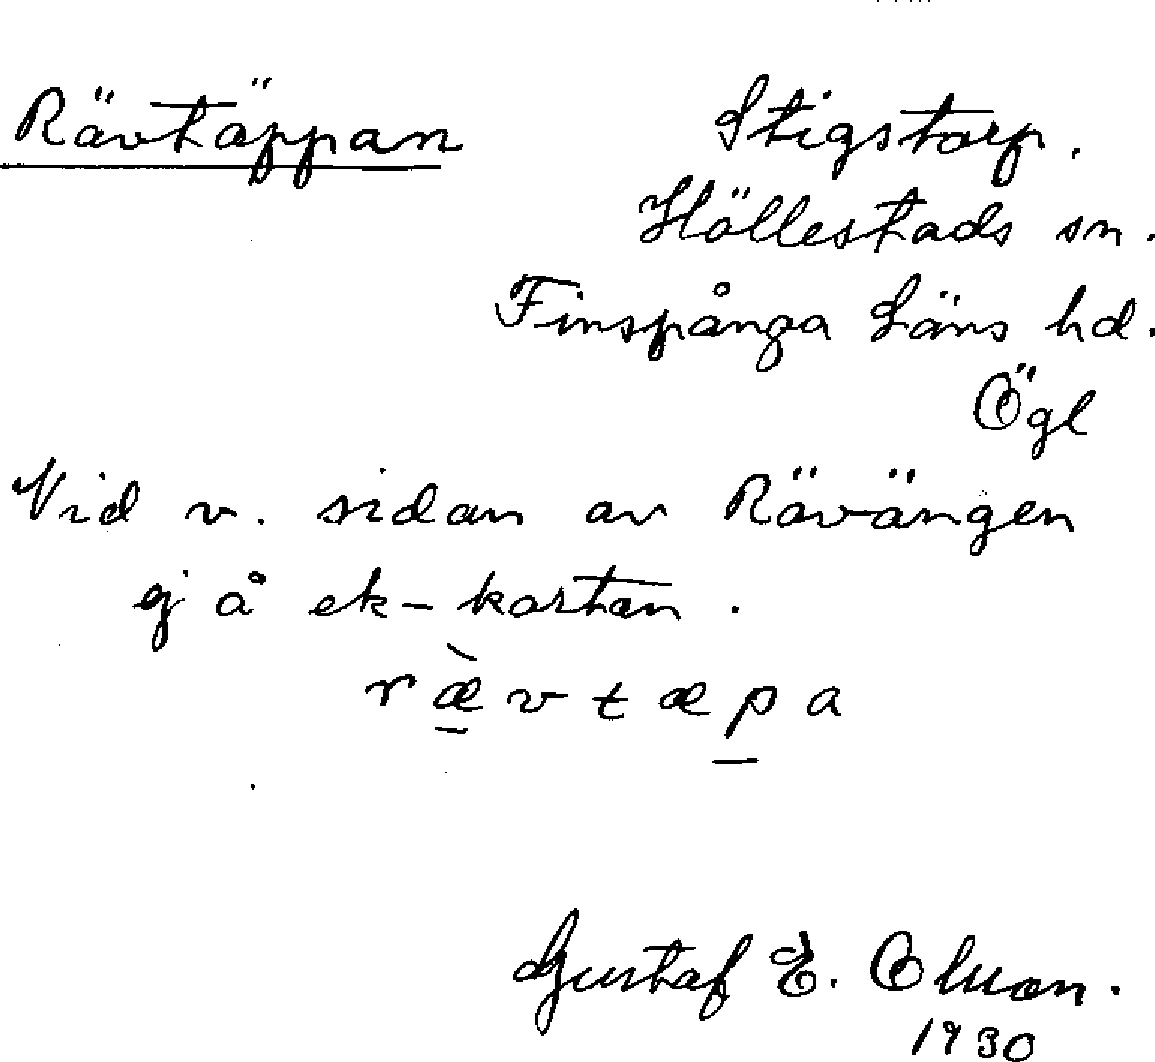 Rävtäppan
Stigstorp.
Hällestads sn.
Finspånga Läns hd.
Ögl
Vid v. sidan av Rävängen
ej å ek-kartan.
ræ̠̀vtæp̠a
Gustaf E. Olsson.
1930